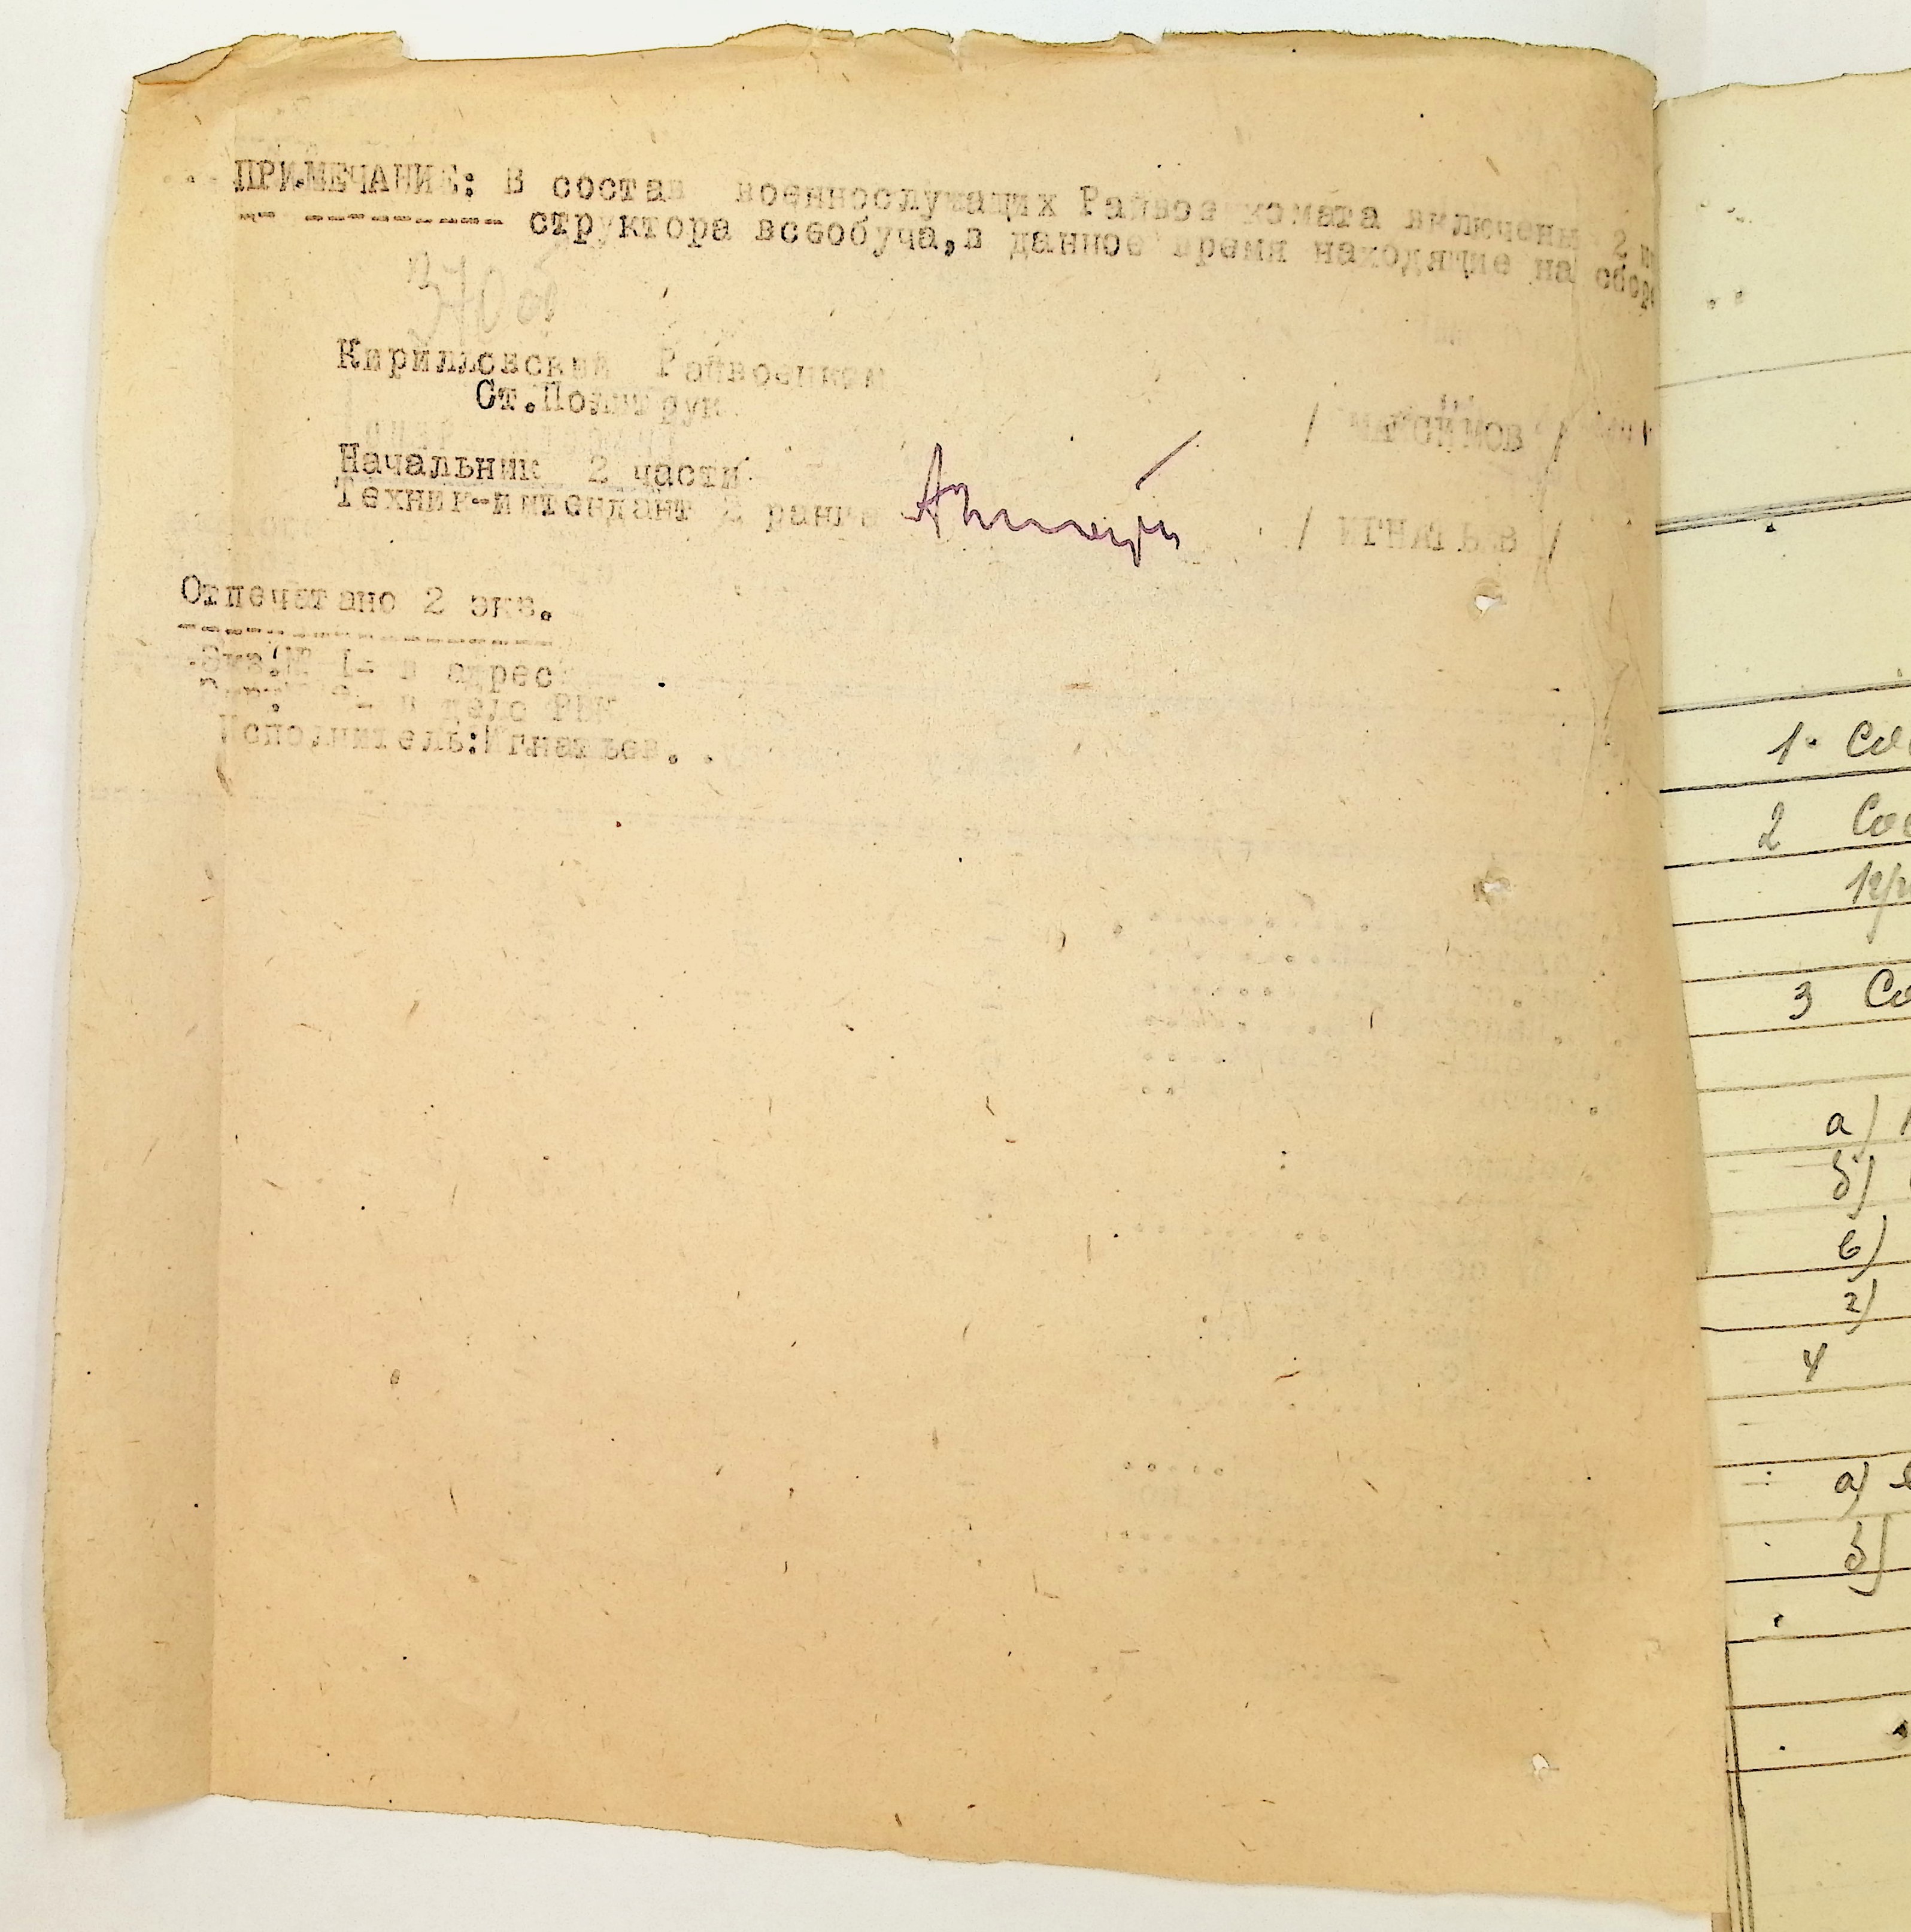 ПРИМЕЧАНИЕ: В состав военнослужащих Райвоенкомата включены 2 ин
структора всеобуча, в данное время находящие на сбора
Кирилловский Райвоенком
Ст.Политрук
/ МАКСИМОВ /
Начальник 2 части
Техник-интендант 2 ранга
/ ИГНАТЬЕВ /
Отпечатано 2 экз.
Экз.№ 1- в адрес
2- в дело РВК
Исполнитель:Игнатьев.
1.
2
3
а)
б)
в)
г)
4
а)
б)